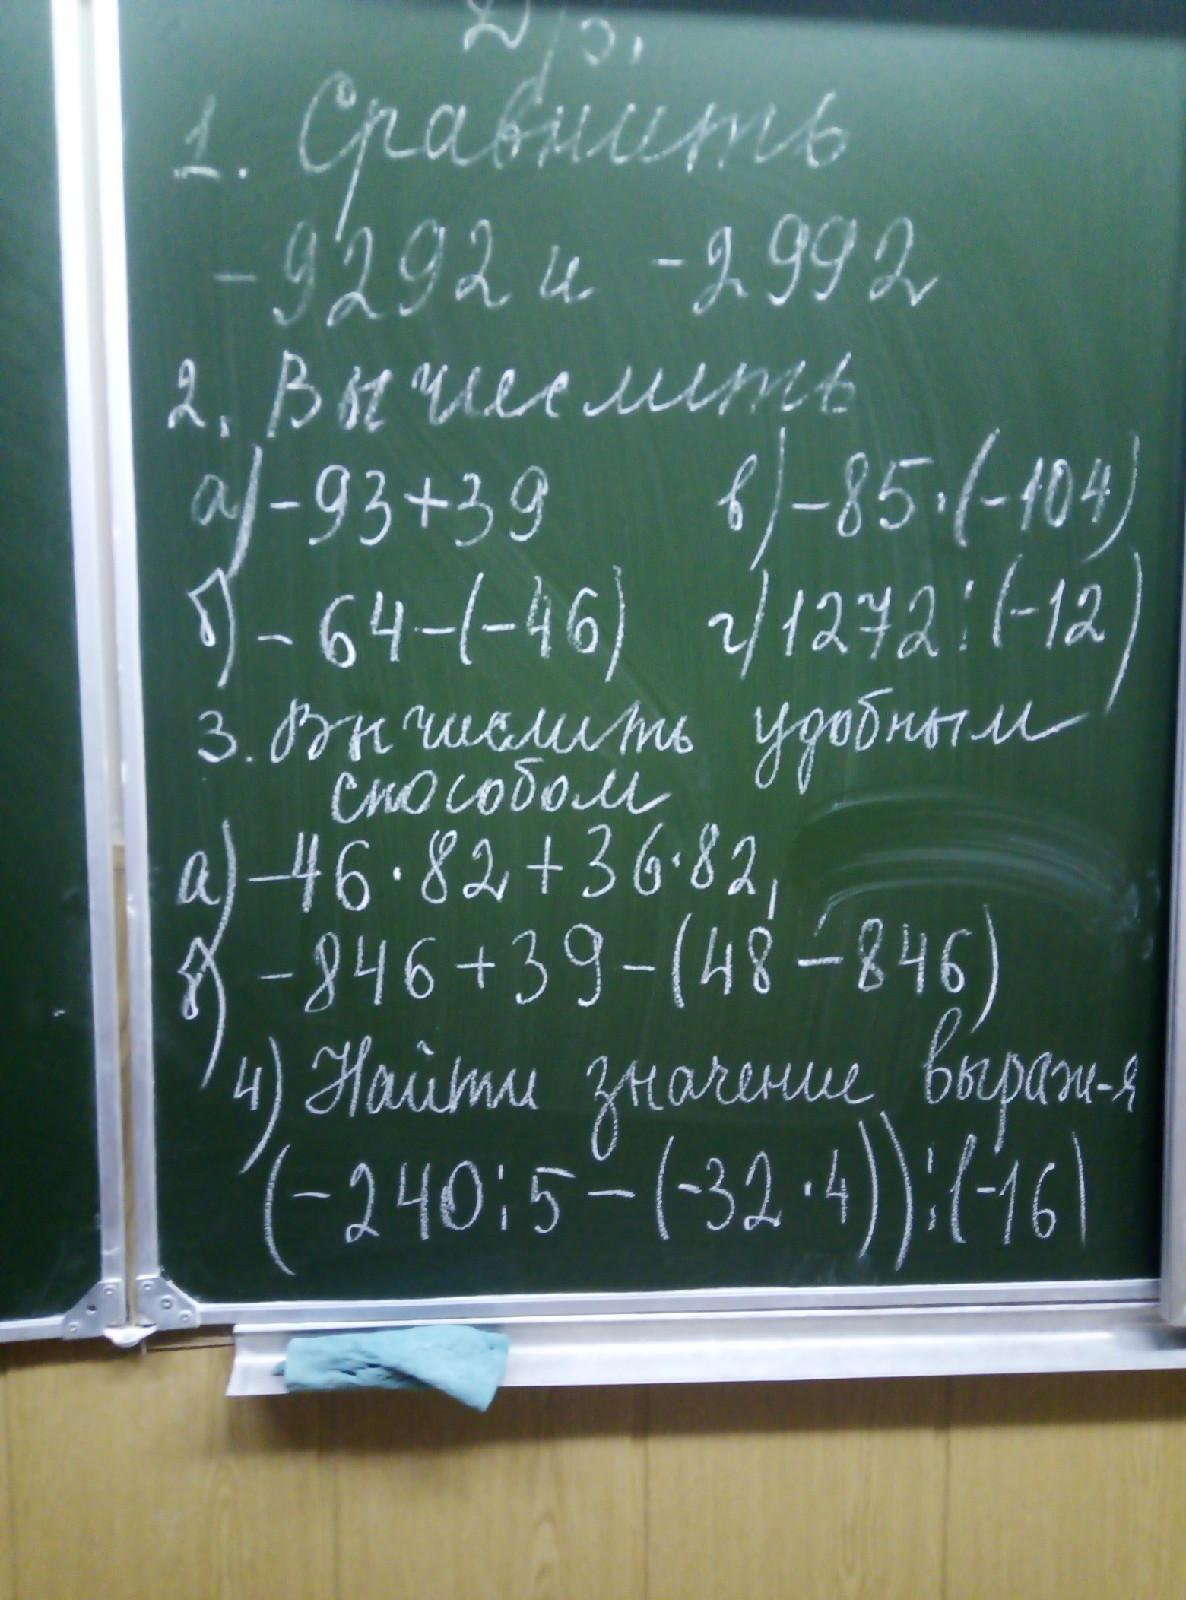 Д/з.
1. Сравнить
-9292 и -2992
2. Вычислить
а) -93+39 в) -85·(-104)
б) -64-(-46) г) 1272:(-12)
3. Вычислить удобным
способом
а) -46·82+36·82,
б) -846+39-(48-846)
4) Найти значение выраж-я
(-240:5-(-32·4)):(-16)